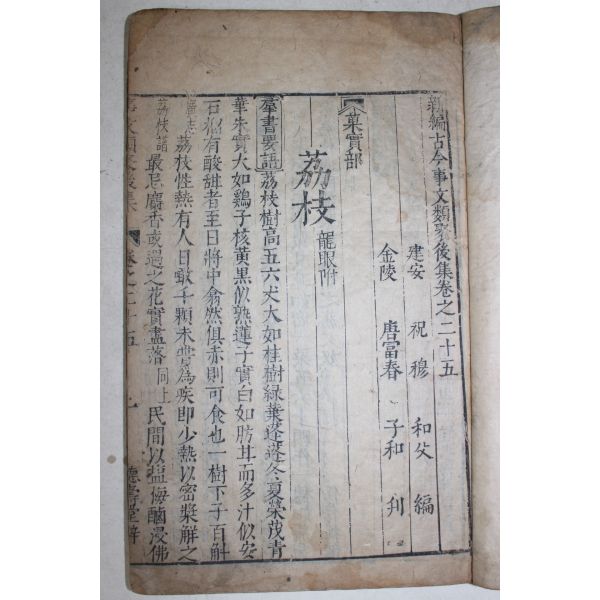 新編古今事文類聚後集卷之二十五
建安 祝穆 和父 編
金陵 唐富春 子和 刋
菓實部
荔枝 龍眼附
羣書要語 荔枝樹高五六丈大如桂樹緑葉蓬蓬冬夏榮茂青
華朱實大如鷄子核黄黒似熟蓮子實白如肪甘而多汁似安
石榴有酸甜者至日將中翕然俱赤則可食也一樹下子百斛
廣志 荔枝性熱有人日啖千顆未嘗為疾即少熱以密漿解之
荔枝譜 最忌麝香或遇之花實盡落 同上 民間以塩梅鹵浸佛
事文類聚後集 卷之二十五 德壽堂梓